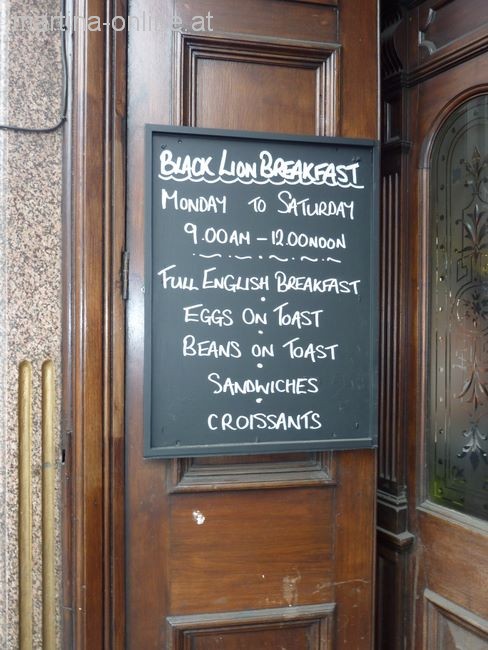 martina-online.at
BLACK LION BREAKFAST
MONDAY TO SATURDAY
9.00AM – 12.00NOON
FULL ENGLISH BREAKFAST
EGGS ON TOAST
BEANS ON TOAST
SANDWICHES
CROISSANTS